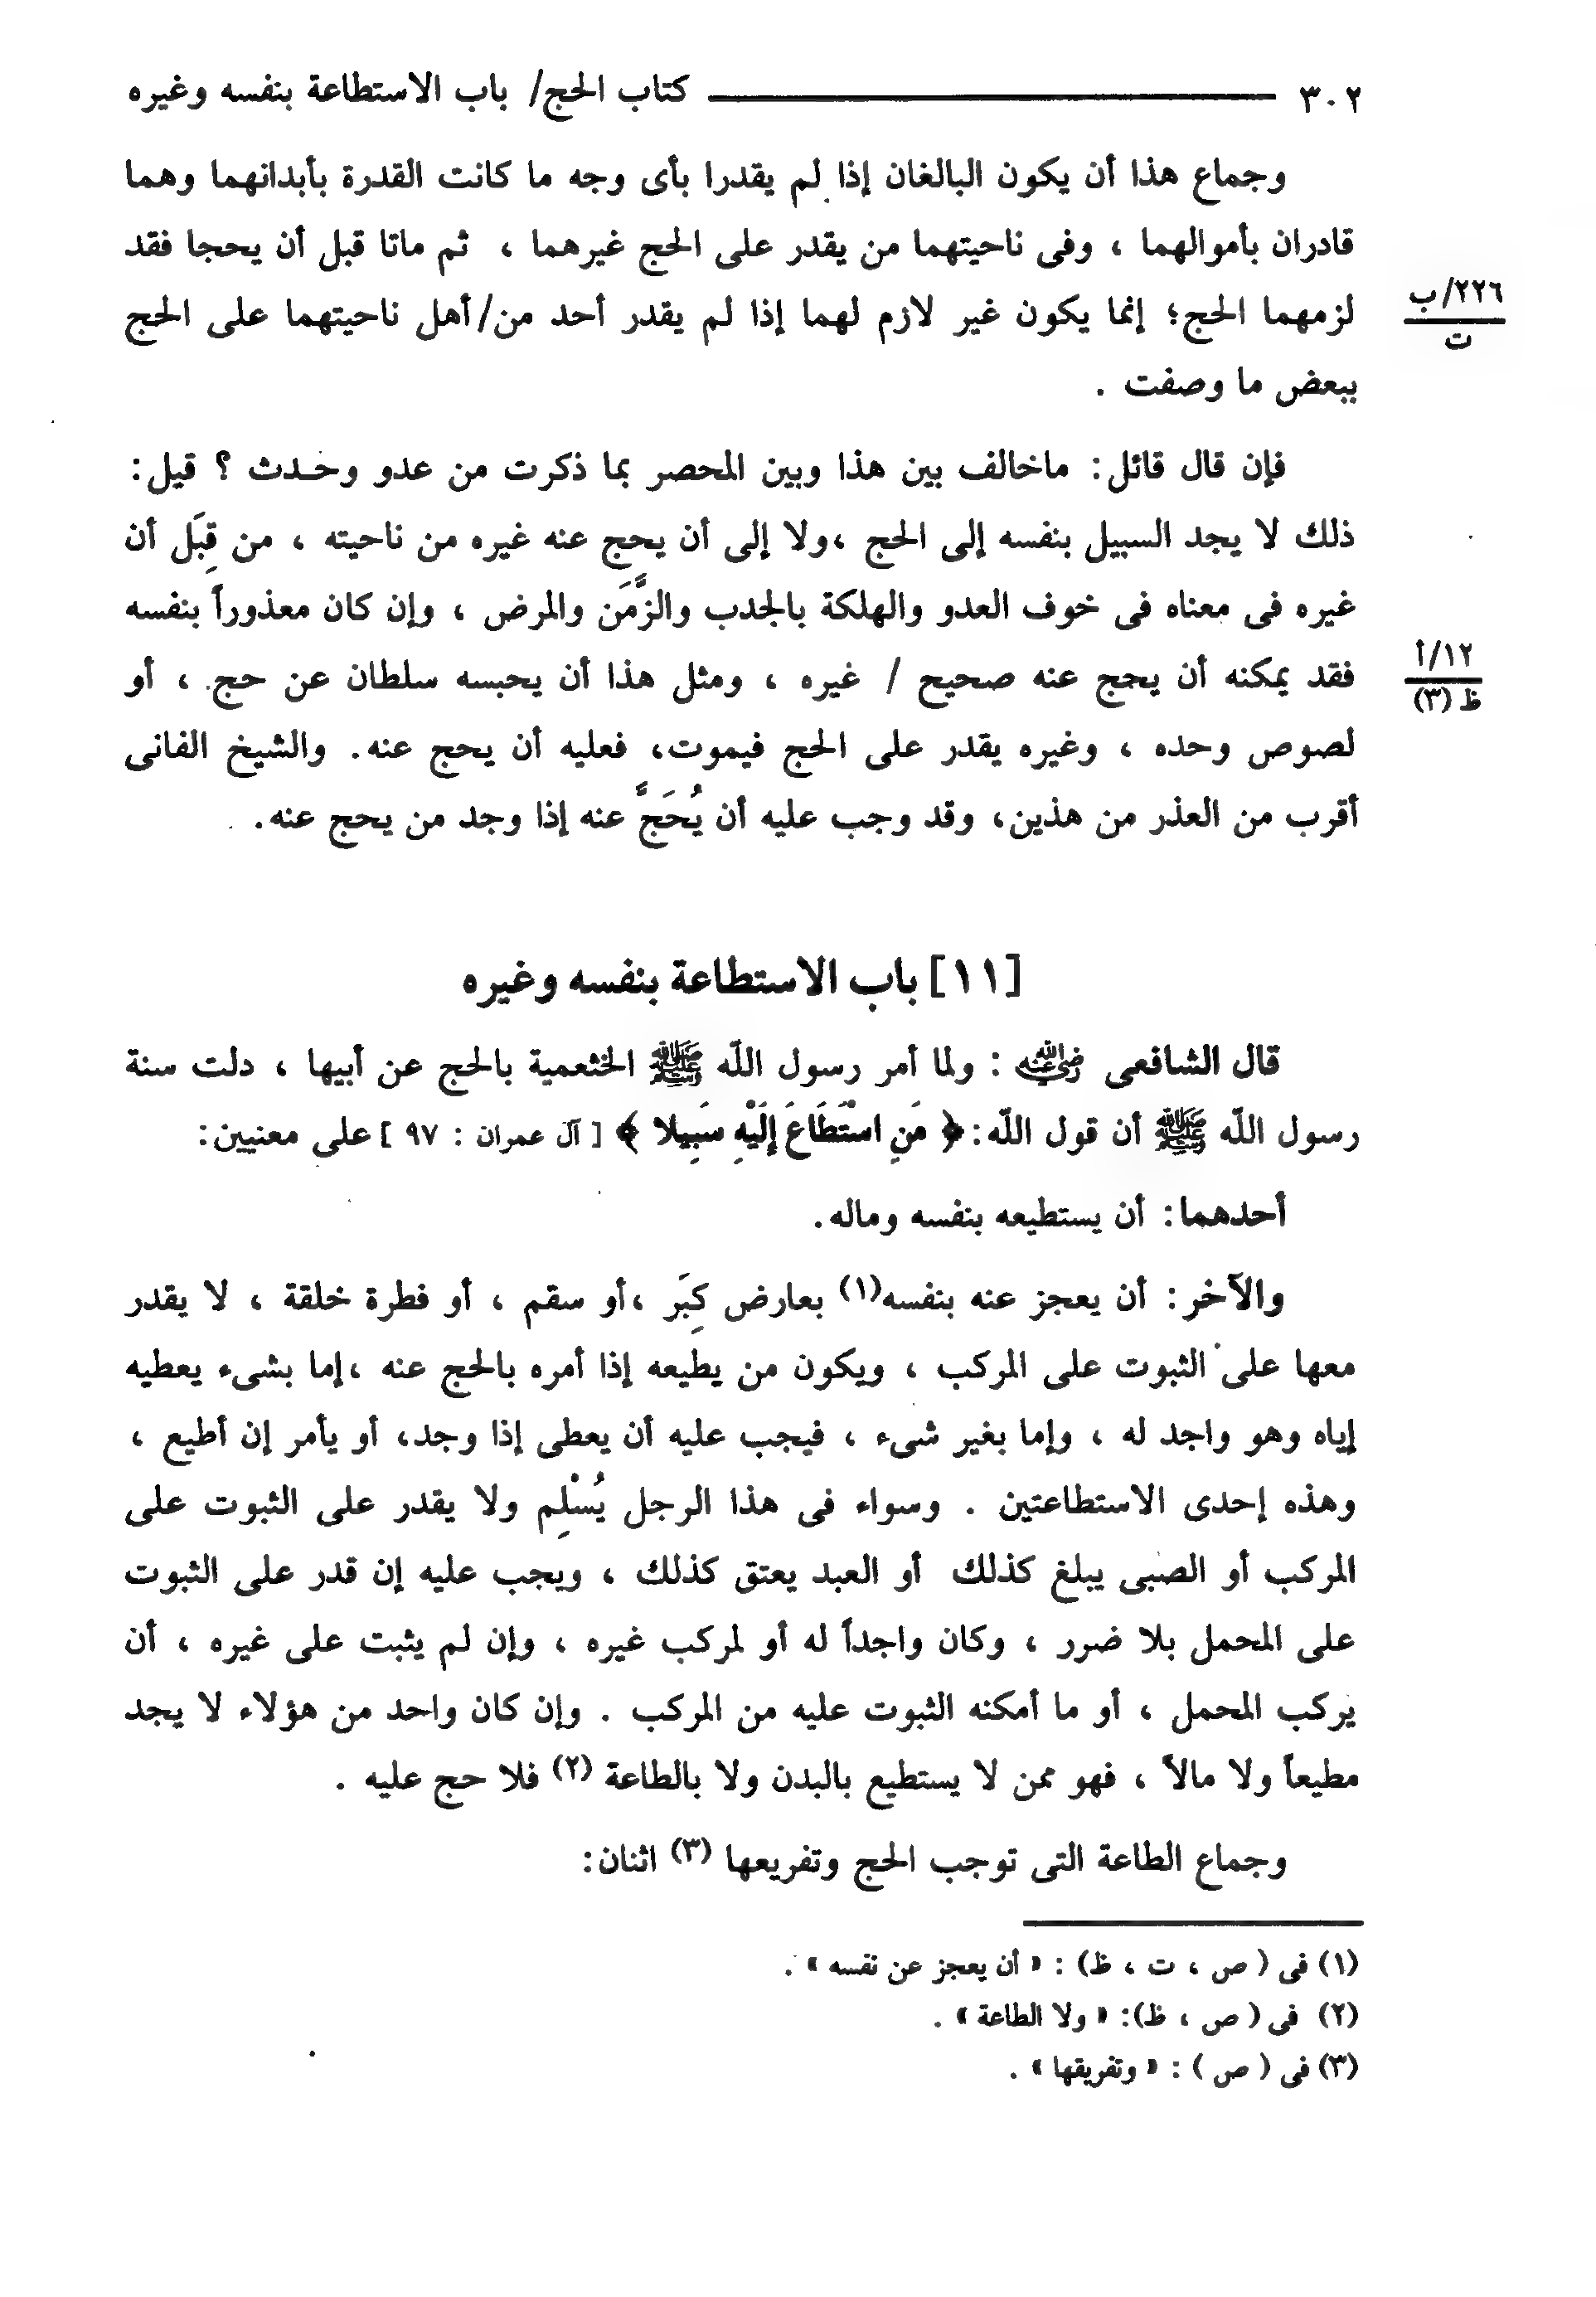 ٣٠٢ كتاب الحج/ باب الاستطاعة بنفسه وغيره
وجماع هذا أن يكون البالغان إذا لم يقدرا بأى وجه ما كانت القدرة بأبدانهما وهما
قادران بأموالهما ، وفى ناحيتهما من يقدر على الحج غيرهما ، ثم ماتا قبل أن يحجا فقد
لزمهما الحج؛ إنما يكون غير لازم لهما إذا لم يقدر أحد من/أهل ناحيتهما على الحج
٢٢٦/ب
ت
ببعض ما وصفت .
فإن قال قائل: ماخالف بين هذا وبين المحصر بما ذكرت من عدو وحـدث ؟ قيل:
ذلك لا يجد السبيل بنفسه إلى الحج ،ولا إلى أن يحج عنه غيره من ناحيته ، من قِبَل أن
غيره فى معناه فى خوف العدو والهلكة بالجدب والزَّمَن والمرض ، وإن كان معذوراً بنفسه
فقد يمكنه أن يحج عنه صحيح / غيره ، ومثل هذا أن يحبسه سلطان عن حج ، أو
١٢/أ
ظ (٣)
لصوص وحده ، وغيره يقدر على الحج فيموت، فعليه أن يحج عنه. والشيخ الفانى
أقرب من العذر من هذين، وقد وجب عليه أن يُحَجَّ عنه إذا وجد من يحج عنه.
[١١] باب الاستطاعة بنفسه وغيره
قال الشافعى رضي الله عنه : ولما أمر رسول اللّه ﷺ الخثعمية بالحج عن أبيها ، دلت سنة
رسول اللّه ﷺ أن قول اللّه: ﴿ مَنِ اسْتَطَاعَ إِلَيْهِ سَبِيلا ﴾ [ آل عمران : ٩٧ ] على معنيين:
أحدهما: أن يستطيعه بنفسه وماله.
والآخر: أن يعجز عنه بنفسه(١) بعارض كِبَر ،أو سقم ، أو فطرة خلقة ، لا يقدر
معها على الثبوت على المركب ، ويكون من يطيعه إذا أمره بالحج عنه ،إما بشىء يعطيه
إياه وهو واجد له ، وإما بغير شىء ، فيجب عليه أن يعطى إذا وجد، أو يأمر إن أطيع ،
وهذه إحدى الاستطاعتين . وسواء فى هذا الرجل يُسْلِم ولا يقدر على الثبوت على
المركب أو الصبى يبلغ كذلك أو العبد يعتق كذلك ، ويجب عليه إن قدر على الثبوت
على المحمل بلا ضرر ، وكان واجداً له أو لمركب غيره ، وإن لم يثبت على غيره ، أن
يركب المحمل ، أو ما أمكنه الثبوت عليه من المركب . وإن كان واحد من هؤلاء لا يجد
مطيعاً ولا مالاً ، فهو ممن لا يستطيع بالبدن ولا بالطاعة (٢) فلا حج عليه .
وجماع الطاعة التى توجب الحج وتفريعها (٣) اثنان:
(١) فى ( ص ، ت ، ظ) : « أن يعجز عن نفسه » .
(٢) فى ( ص ، ظ): « ولا الطاعة » .
(٣) فى ( ص ) : « وتفريقها » .